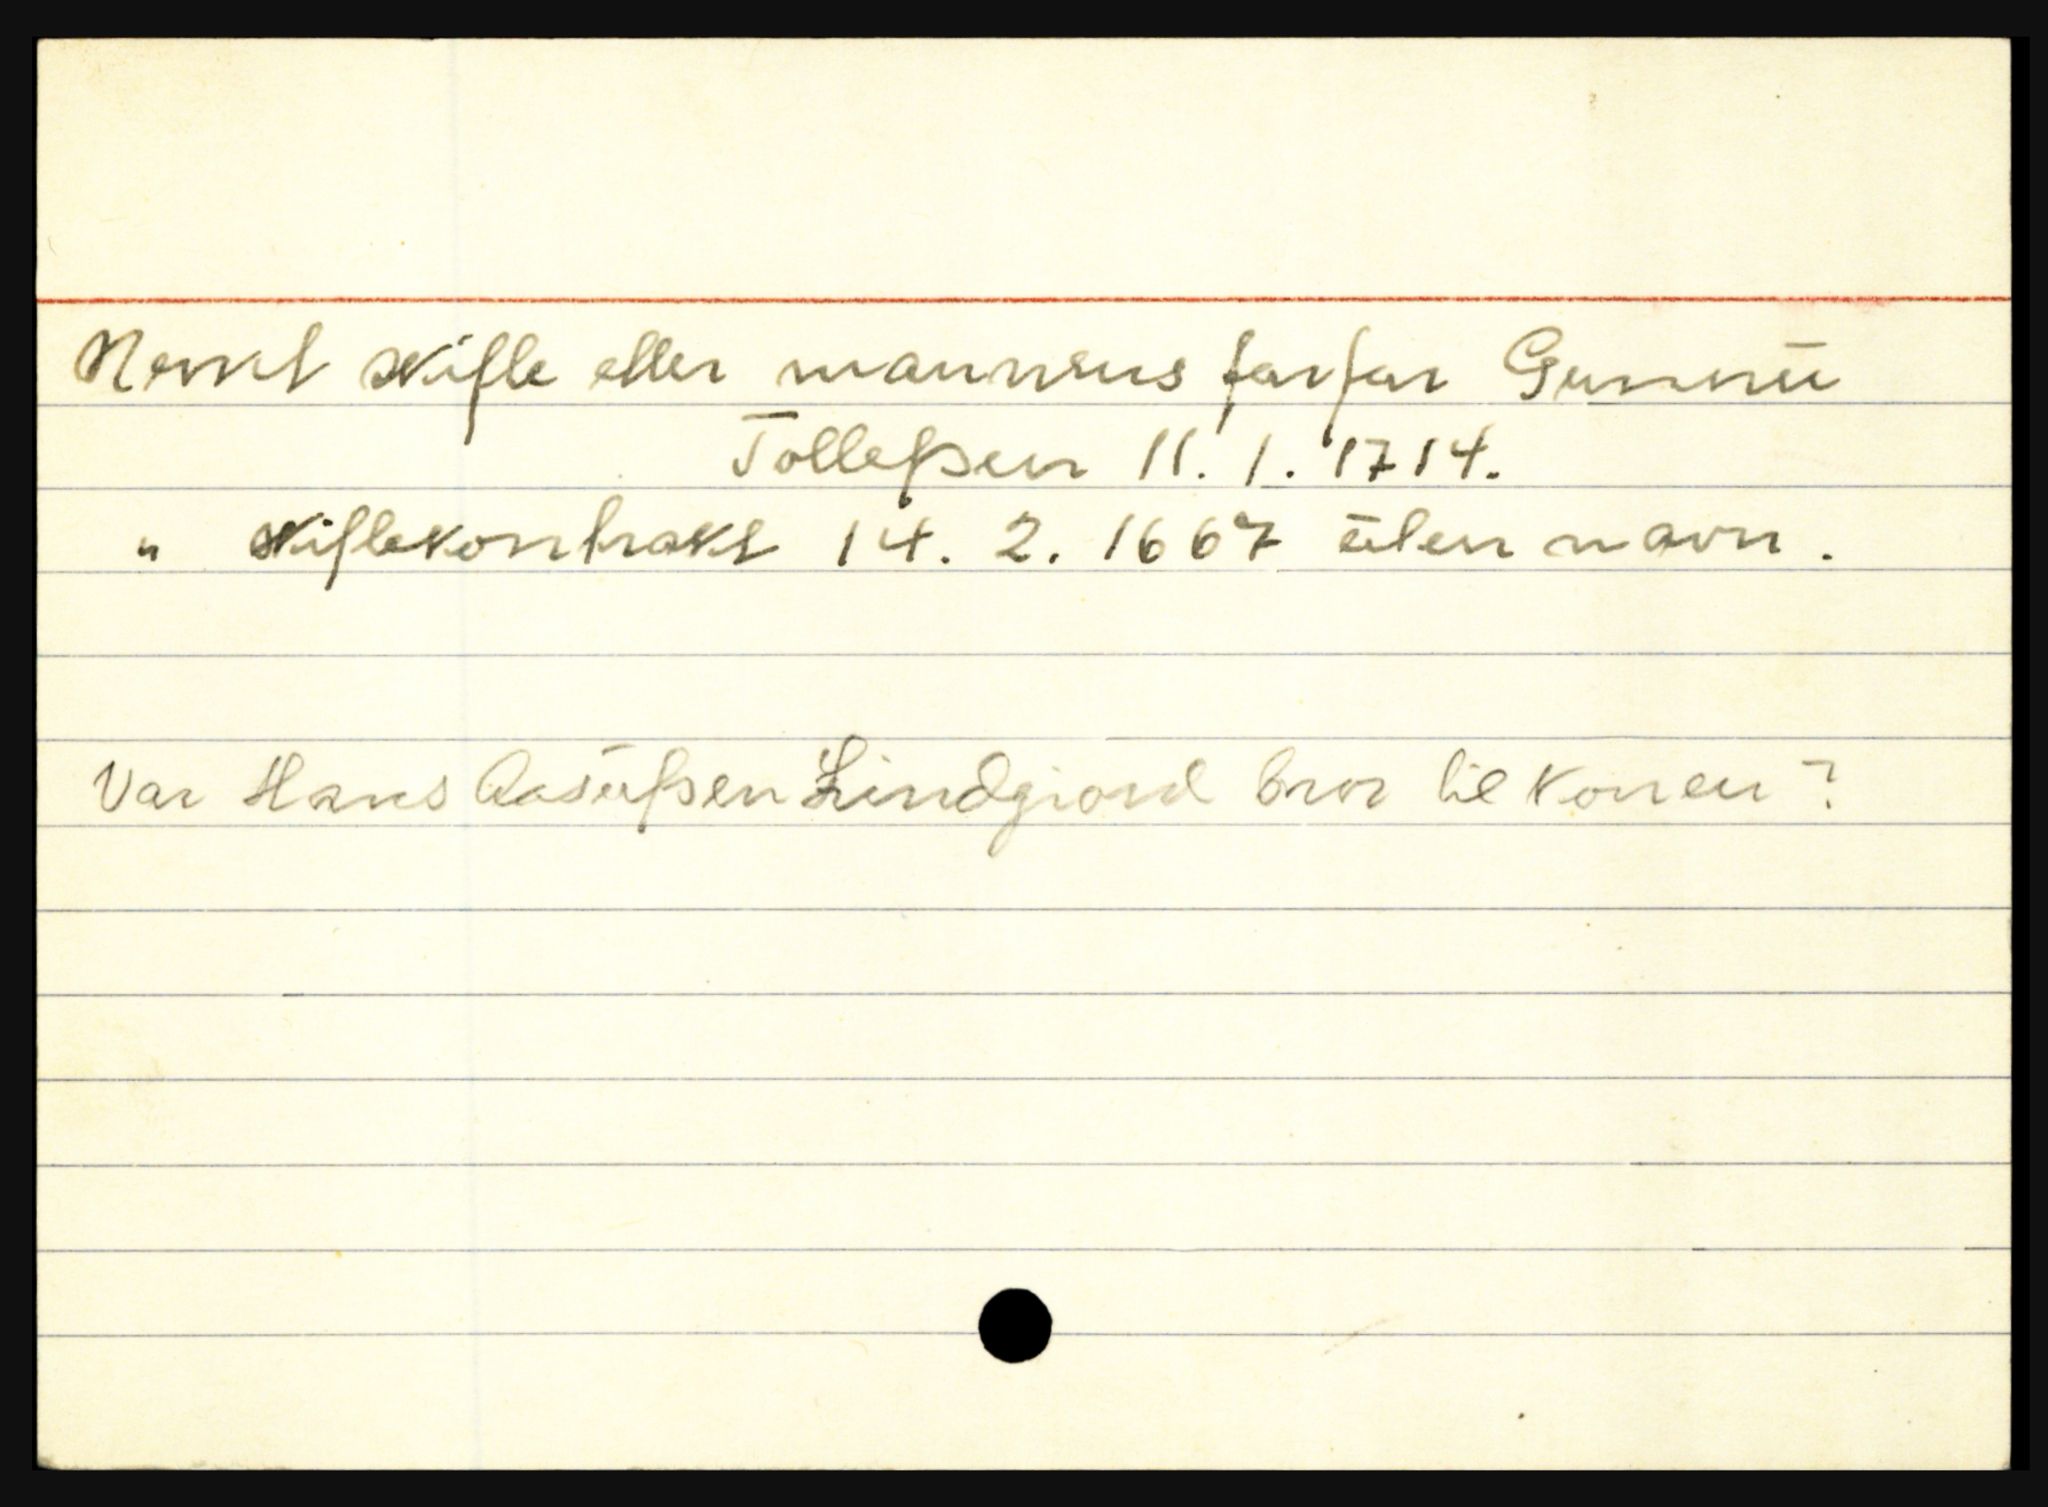 Nevnt skifte etter mannens farfar Gunnū
Tollefsen 11. 1. 1714.
" skiftekontrakt 14. 2. 1667 ūten navn.
Var Hans Aasūlfsen Lindgiord bror til konen?